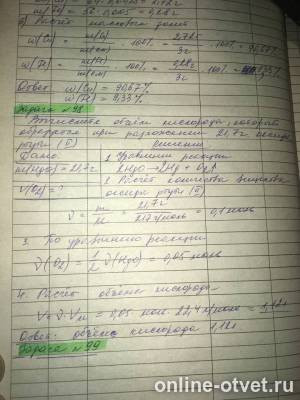 в) Расчёт массовых долей
w(Cu) = m(Cu) / m(см) · 100% = 2,72г / 3г · 100% = 90,67%
w(Fe) = m(Fe) / m(см) · 100% = 0,28г / 3г · 100% = 9,33%
Ответ: w(Cu) = 90,67%
w(Fe) = 9,33%
Задача №98
Вычислите объём кислорода, который
образуется при разложении 21,7г оксида
ртути (II)
Дано: Решение.
m(HgO) = 21,7г 1. Уравнение реакции
2HgO → 2Hg + O₂↑
V(O₂) = ? 2. Расчёт количества вещества
оксида ртути (II)
ν = m / M = 21,7г / 217г/моль = 0,1 моль
3. По уравнению реакции
ν(O₂) = 1/2 ν(HgO) = 0,05 моль
4. Расчёт объёма кислорода
V = ν · Vm = 0,05 моль · 22,4 л/моль = 1,12л
Ответ: объём кислорода 1,12л
Задача №99
online-otvet.ru